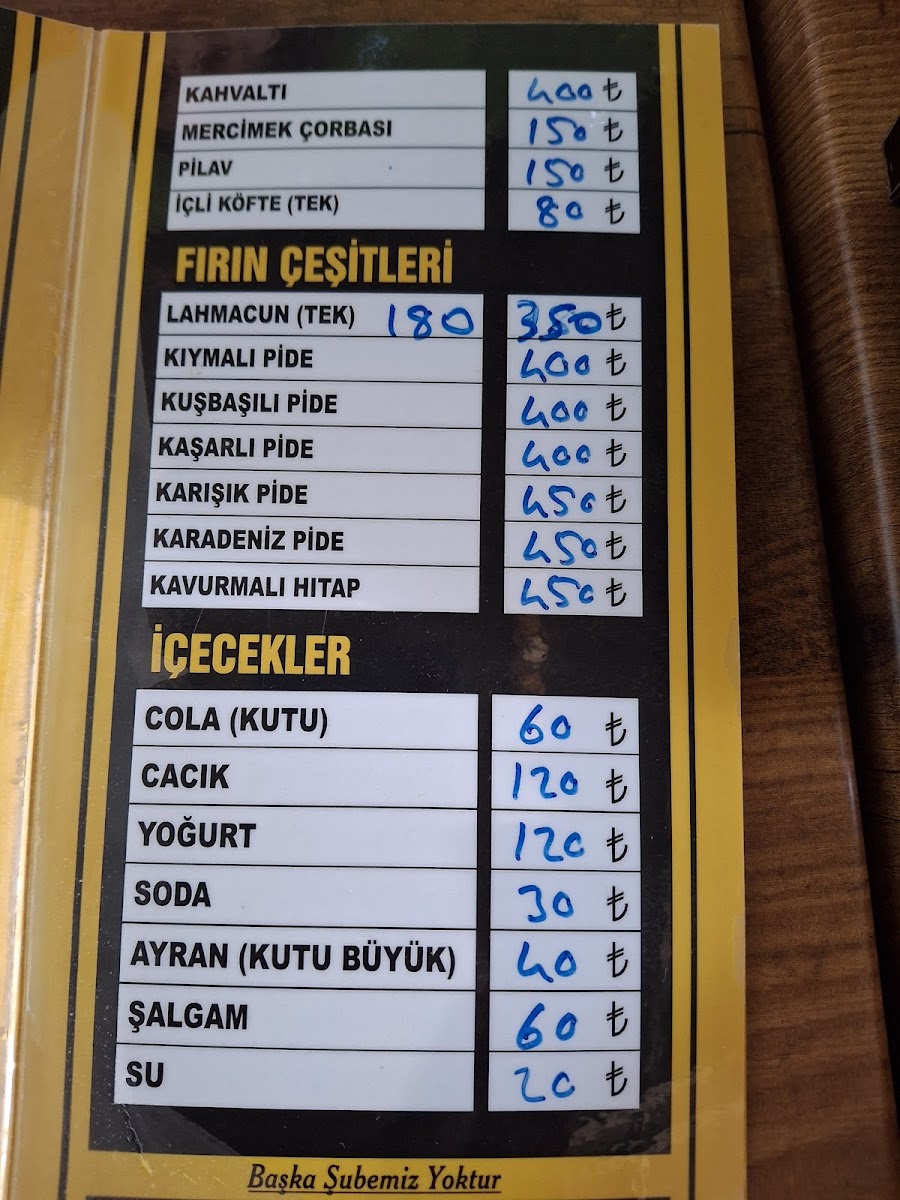 KAHVALTI 400 ₺
MERCİMEK ÇORBASI 150 ₺
PİLAV 150 ₺
İÇLİ KÖFTE (TEK) 80 ₺
FIRIN ÇEŞİTLERİ
LAHMACUN (TEK) 180 350 ₺
KIYMALI PİDE 400 ₺
KUŞBAŞILI PİDE 400 ₺
KAŞARLI PİDE 400 ₺
KARIŞIK PİDE 450 ₺
KARADENİZ PİDE 450 ₺
KAVURMALI HITAP 450 ₺
İÇECEKLER
COLA (KUTU) 60 ₺
CACIK 120 ₺
YOĞURT 120 ₺
SODA 30 ₺
AYRAN (KUTU BÜYÜK) 40 ₺
ŞALGAM 60 ₺
SU 20 ₺
Başka Şubemiz Yoktur